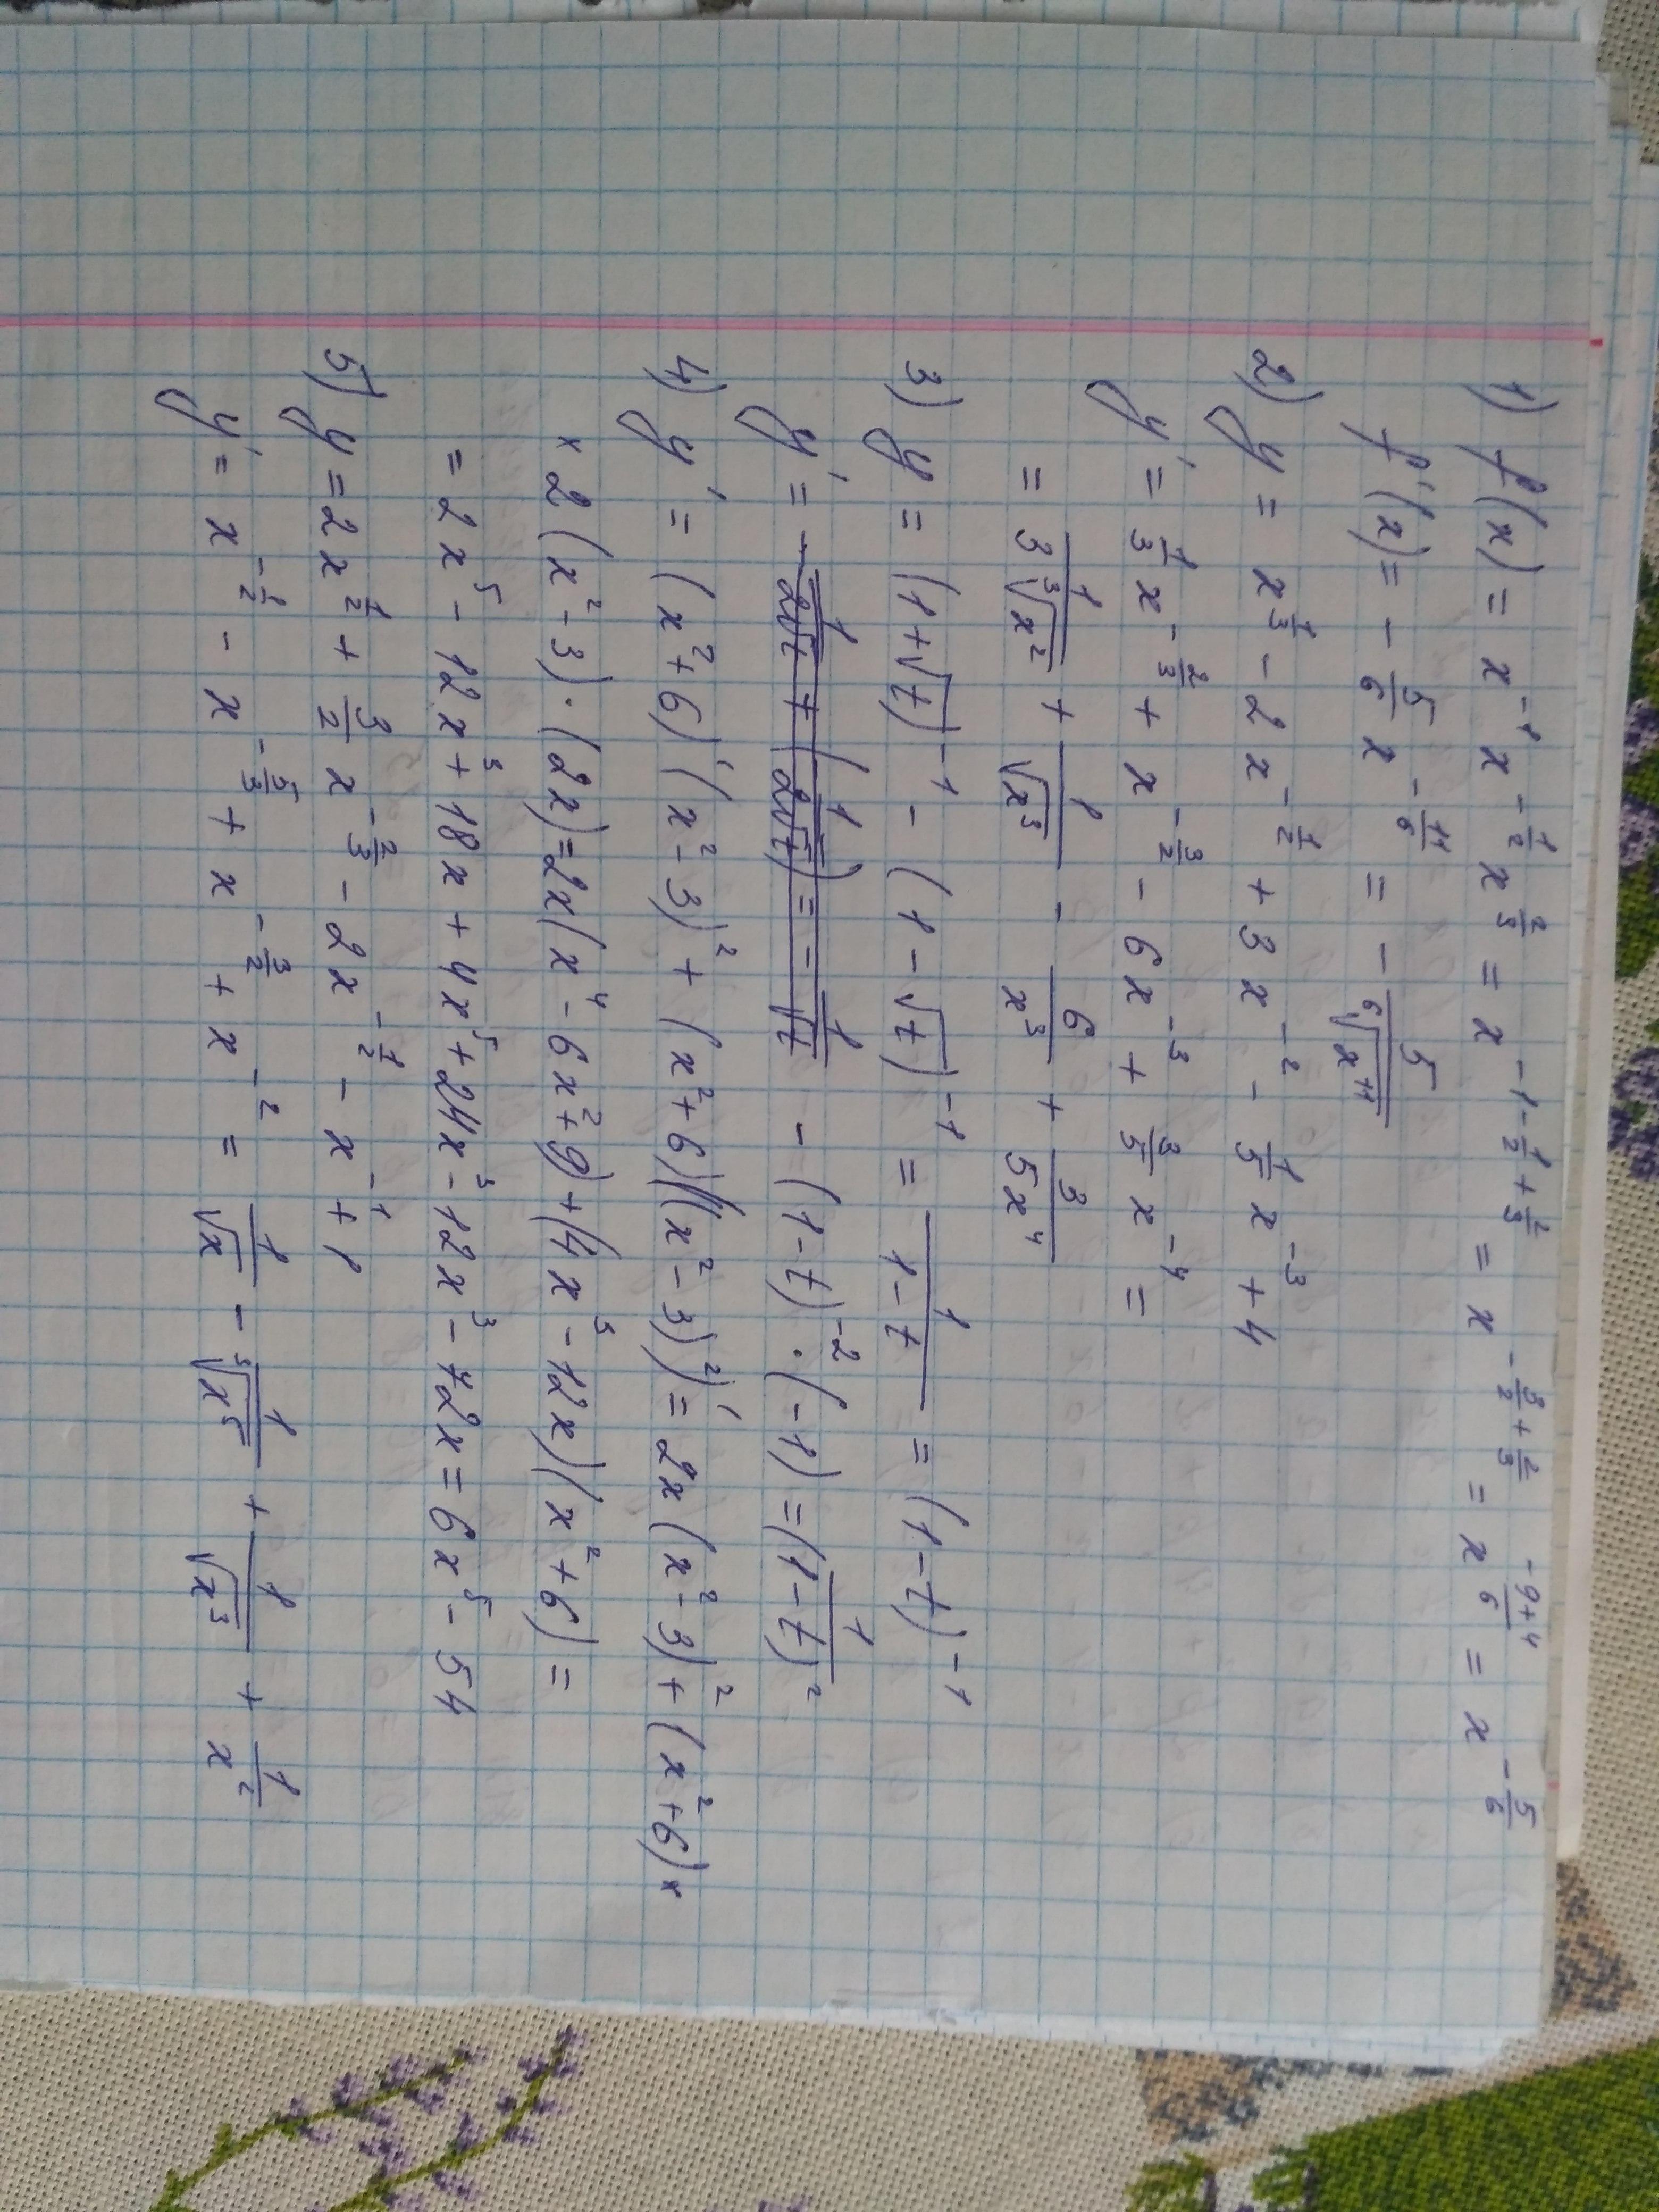 1) f(x) = x^{-1} x^{-\frac{1}{2}} x^{\frac{2}{3}} = x^{-1-\frac{1}{2}+\frac{2}{3}} = x^{-\frac{3}{2}+\frac{2}{3}} = x^{\frac{-9+4}{6}} = x^{-\frac{5}{6}}
f'(x) = -\frac{5}{6} x^{-\frac{11}{6}} = -\frac{5}{\sqrt[6]{x^{11}}}
2) y = x^{\frac{1}{3}} - 2x^{-\frac{1}{2}} + 3x^{-2} - \frac{1}{5}x^{-3} + 4
y' = \frac{1}{3}x^{-\frac{2}{3}} + x^{-\frac{3}{2}} - 6x^{-3} + \frac{3}{5}x^{-4} =
= \frac{1}{3\sqrt[3]{x^2}} + \frac{1}{\sqrt{x^3}} - \frac{6}{x^3} + \frac{3}{5x^4}
3) y = (1+\sqrt{t})^{-1} - (1-\sqrt{t})^{-1} = \frac{1}{1-t} = (1-t)^{-1}
y' = -\frac{1}{2\sqrt{t}} + (\frac{1}{2\sqrt{t}}) = -\frac{1}{\sqrt{t}} - (1-t)^{-2} · (-1) = \frac{1}{(1-t)^2}
4) y' = (x^2+6)'(x^2-3)^2 + (x^2+6)((x^2-3)^2)' = 2x(x^2-3)^2 + (x^2+6)×
× 2(x^2-3)·(2x) = 2x(x^4-6x^2+9)+(4x^3-12x)(x^2+6) =
= 2x^5 - 12x^3 + 18x + 4x^5 + 24x^3 - 12x^3 - 72x = 6x^5 - 54
5) y = 2x^{\frac{1}{2}} + \frac{3}{2}x^{-\frac{2}{3}} - 2x^{-\frac{1}{2}} - x^{-1} + 1
y' = x^{-\frac{1}{2}} - x^{-\frac{5}{3}} + x^{-\frac{3}{2}} + x^{-2} = \frac{1}{\sqrt{x}} - \frac{1}{\sqrt[3]{x^5}} + \frac{1}{\sqrt{x^3}} + \frac{1}{x^2}